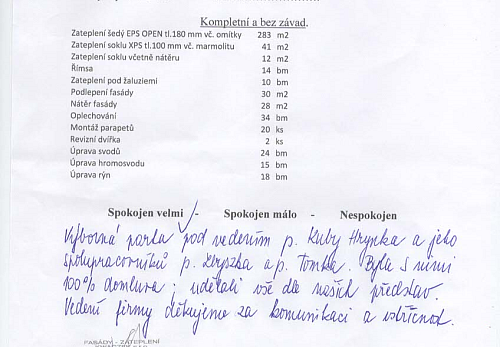 Kompletní a bez závad.
Zateplení šedý EPS OPEN tl.180 mm vč. omítky 283 m2
Zateplení soklu XPS tl.100 mm vč. marmolitu 41 m2
Zateplení soklu včetně nátěru 12 m2
Římsa 14 bm
Zateplení pod žaluziemi 10 bm
Podlepení fasády 30 m2
Nátěr fasády 28 m2
Oplechování 34 bm
Montáž parapetů 20 ks
Revizní dvířka 2 ks
Úprava svodů 24 bm
Úprava hromosvodu 15 bm
Úprava rýn 18 bm
Spokojen velmi - Spokojen málo - Nespokojen
Výborná parta pod vedením p. Kuby Hrynka a jeho
spolupracovníků p. Zbyszka a p. Tomka. Byla s nimi
100% domluva; udělali vše dle našich představ.
Vedení firmy děkujeme za komunikaci a vstřícnost.
FASÁDY - ZATEPLENÍ